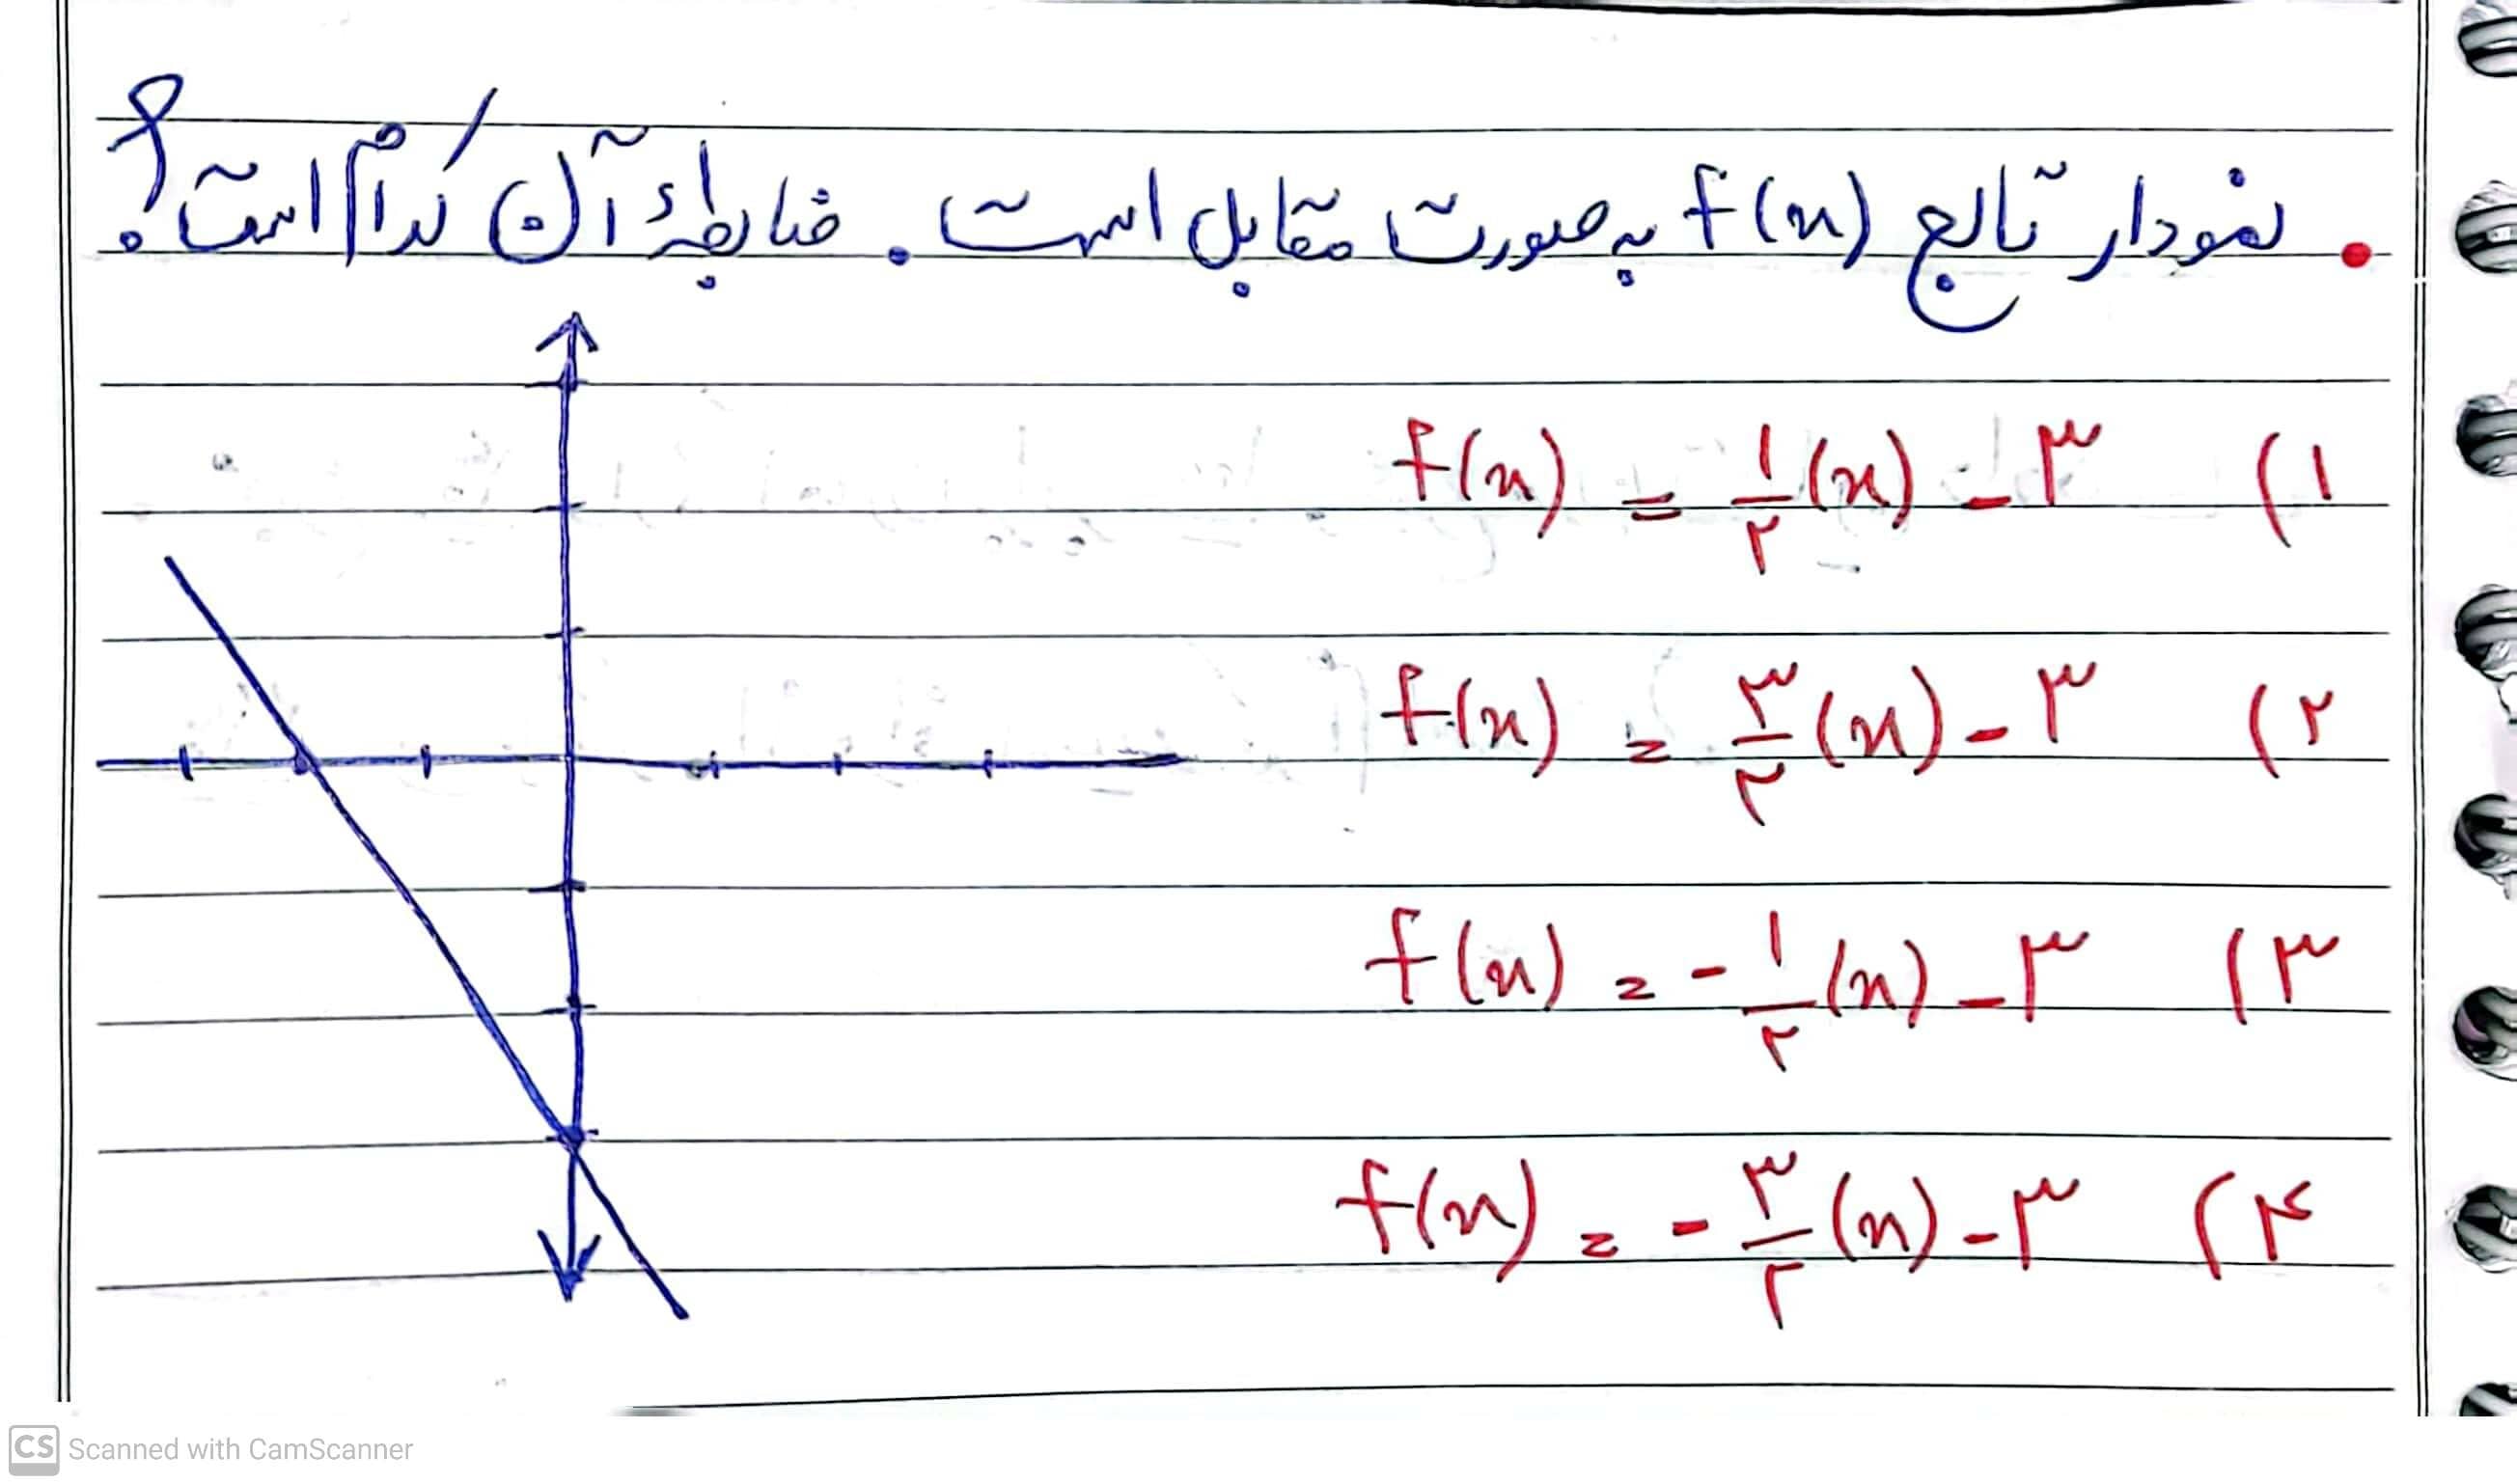 . نمودار تابع f(x) به صورت مقابل است . ضابطهٔ آن کدام است ؟
۱) f(x) = ۱/۲ (x) - ۳
۲) f(x) = ۳/۲ (x) - ۳
۳) f(x) = - ۱/۲ (x) - ۳
۴) f(x) = - ۳/۲ (x) - ۳
CS Scanned with CamScanner